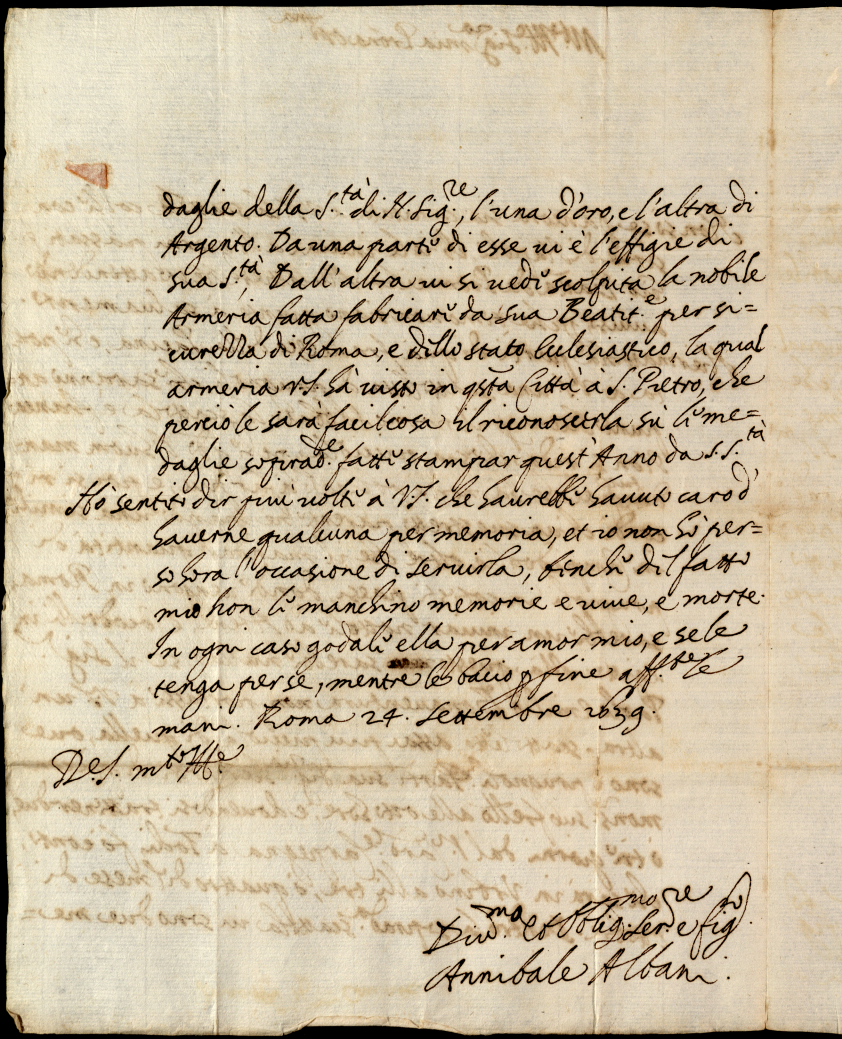 daglie della S.tà di N. Sig.re, l'una d'oro, e l'altra di
Argento. Da una parte di esse vi è l'effigie di
sua S.tà, Dall'altra vi si vede scolpita la nobile
Armeria fatta fabricare da sua Beatit.e per si=
curezza di Roma, e dello stato Ecclesiastico, la qual
armeria V.S. hà visto in q̃sta Città à S. Pietro, che
perciò le sarà facil cosa il riconoscerla sù le me=
daglie sopirad.e fatte stampar quest'Anno da S. S.tà
Hò sentito dir più volte à V.S. che haurebbe hauuto caro d'
hauerne qualcuna per memoria, et io non hò per=
so hora l'occasione di seruirla, benche del fatto
mio non le manchino memorie e viue, e morte.
In ogni caso godale ella per amor mio, e se le
tenga per se, mentre le bacio p fine aff.te le
mani. Roma 24. Settembre 1639.
De S. m.to Ill.e
Diu.mo et Obblig.mo Ser.re e fig.lo
Annibale Albani.